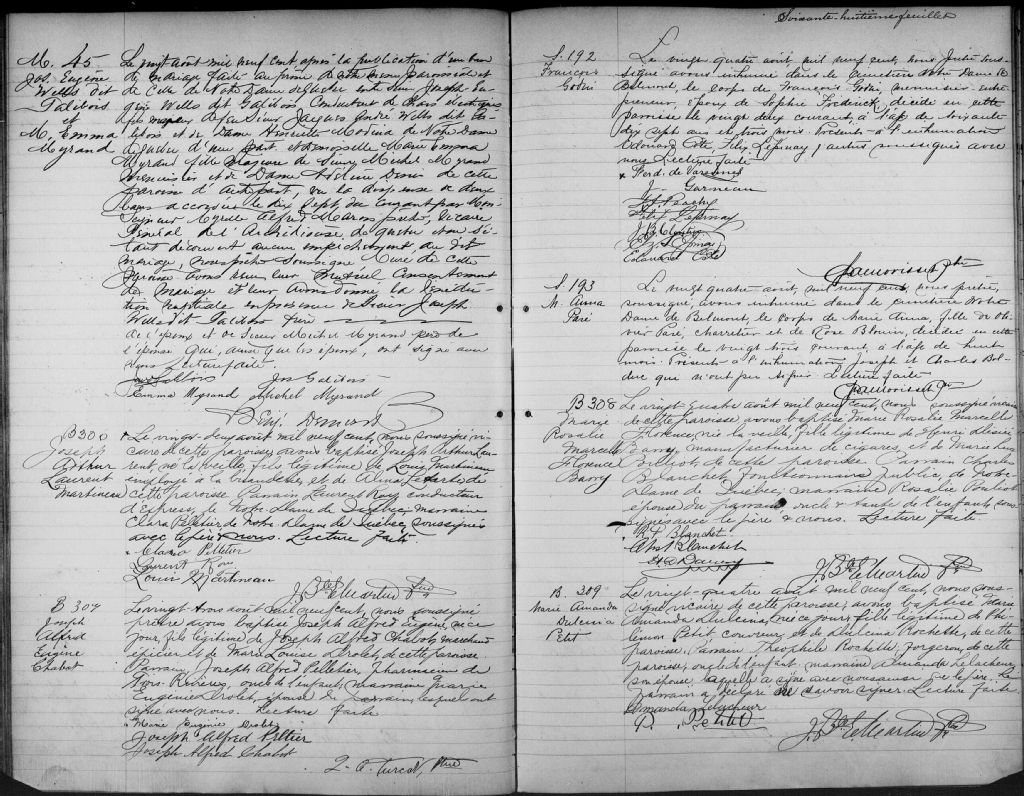 M. 45
Jos. Eugène
Wells dit
Galibois
et
M. Emma
Myrand
Le vingt août mil neuf cent après la publication d'un ban
de mariage faite au prône de
de celle de Notre Dame de Québec entre Sieur Joseph Eu-
gène Wells dit Galibois
fils majeur de feu Sieur Jacques André Wells dit Ga-
libois et de Dame Henriette de Notre Dame
de Québec d'une part, et demoiselle Marie Emma
Myrand fille majeure de Sieur Michel Myrand
menuisier et de Dame Denis de cette
paroisse d'autre part, vu la dispense de deux
bans accordée le dix sept du courant par Mon-
seigneur Cyrille Alfred Marois prêtre, Vicaire
Général de l'Archidiocèse de Québec et ne s'é-
tant découvert aucun empêchement au dit
mariage, nous prêtre soussigné Curé de cette
paroisse avons reçu leur mutuel consentement
de mariage et leur avons donné la bénédic-
tion nuptiale en présence de Sieur Joseph
Wells dit Galibois frère
de l'époux et de Sieur Michel Myrand père de
l'épouse qui, ainsi que les époux, ont signé avec
nous. Lecture faite.
Jos Galibois Jos Galibois
Emma Myrand Michel Myrand
Benj. Demers Ptre
B 306
Joseph
Arthur
Laurent
Martineau
Le vingt-deux août mil neuf cent, nous soussigné vi-
caire de cette paroisse, avons baptisé Joseph Arthur Lau-
rent, né la veille, fils légitime de Louis Martineau
employé à la buanderie, et de Alma de
cette paroisse. Parrain Laurent Roy conducteur
d'express, de Notre Dame de Québec, marraine
Clara Pelletier de Notre Dame de Québec, soussignés
avec le père & nous. Lecture faite
Clara Pelletier
Laurent Roy
Louis Martineau
J. Bte Martin Ptre
B 307
Joseph
Alfred
Eugène
Chabot
Le vingt-trois août mil neuf cent, nous soussigné
prêtre avons baptisé Joseph Alfred Eugène, né ce
jour, fils légitime de Joseph Alfred Chabot, marchand
épicier et de Marie Louise Drolet, de cette paroisse
Parrain, Joseph Alfred Pelletier, Pharmacien de
Trois-Rivières, oncle de l'enfant, marraine Marie
Eugénie Drolet, épouse du parrain, lesquels ont
signé avec nous. Lecture faite
Marie Eugénie Drolet
Joseph Alfred Peltier
Joseph Alfred Chabot
L. A. Turcot, Ptre
Soixante-huitième feuillet
S. 192
François
Godin
Le vingt quatre août, mil neuf cent, nous Prêtre sous-
signé avons inhumé dans le cimetière Notre Dame de
Belmont, le corps de François Godin, menuisier-entre-
preneur, époux de Sophie Frederick, décédé en cette
paroisse le vingt deux courant, à l'âge de soixante
dix sept ans et trois mois. Présents à l'inhumation
Edouard Côté, Félix Lépinay, & autres soussignés avec
nous Lecture faite
Ferd. de Varennes
J. Garneau
Félix Lépinay
Edouard Côté
J. Lamorisset Ptre
S. 193
M. Anna
Paré
Le vingt quatre août, mil neuf cent, nous prêtre,
soussigné, avons inhumé dans le cimetière Notre
Dame de Belmont, le corps de Marie Anna, fille de Oli-
vier Paré, charretier et de Rose Blouin, décédée en cette
paroisse le vingt trois courant, à l'âge de huit
mois. Présents à l'inhumation, Joseph et Charles Bol-
duc qui n'ont pu signer. Lecture faite
J. Lamorisset Ptre
B 308
Marie
Rosalie
Marcelle
Florence
Barry
Le vingt quatre août mil neuf cent, nous soussigné vicaire
de cette paroisse, avons baptisé Marie Rosalie Marcelle
Florence, née la veille, fille légitime de Henri Elisée
Barry, manufacturier de cigares, et de Marie Luce
Billiot, de cette paroisse. Parrain Charles
Blanchet, fonctionnaire public, de Notre
Dame de Québec, marraine Rosalie Pouliot
épouse du parrain, oncle & tante de l'enfant, sous-
signés avec le père & nous. Lecture faite
R. P. Blanchet
Chs Blanchet
H. E. Barry
J. Bte Martin Ptre
B. 309
Marie Amanda
Dulcina
Petit
Le vingt-quatre août mil neuf cent, nous sous-
signé vicaire de cette paroisse, avons baptisé Marie
Amanda Dulcina, née ce jour, fille légitime de Phi-
lémon Petit, couvreur, et de Dulcina Rochette, de cette
paroisse. Parrain Théophile Rochette, forgeron, de cette
paroisse, oncle de l'enfant, marraine Amanda Letacheur,
son épouse, laquelle a signé avec nous ainsi que le père. Le
parrain a déclaré ne savoir signer. Lecture faite
Amanda Letacheur
P. Petit
J. Bte Martin Ptre